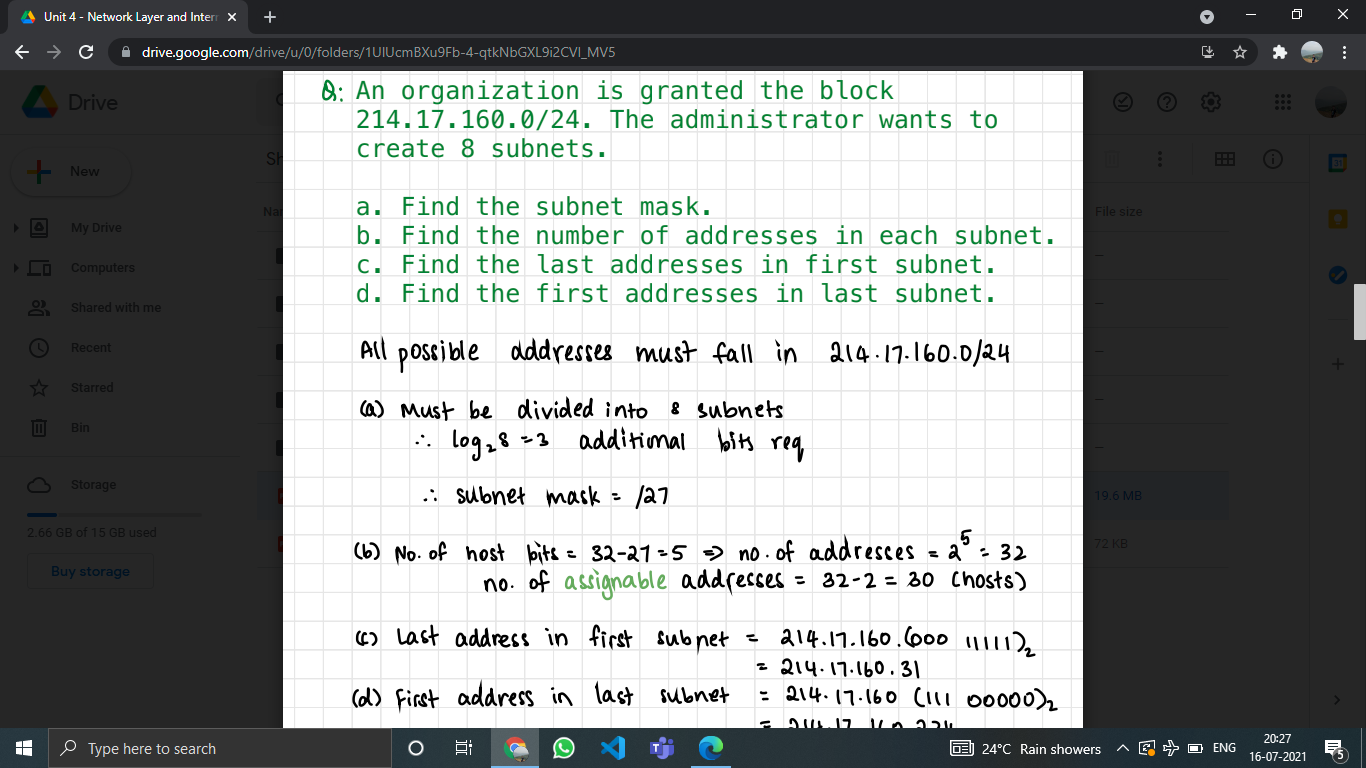 Unit 4 - Network Layer and Intern
drive.google.com/drive/u/0/folders/1UIUcmBXu9Fb-4-qtkNbGXL9i2CVI_MV5
Drive
New
My Drive
Computers
Shared with me
Recent
Starred
Bin
Storage
2.66 GB of 15 GB used
Buy storage
Sh
Nar
File size
19.6 MB
72 KB
Q: An organization is granted the block
214.17.160.0/24. The administrator wants to
create 8 subnets.
a. Find the subnet mask.
b. Find the number of addresses in each subnet.
c. Find the last addresses in first subnet.
d. Find the first addresses in last subnet.
All possible addresses must fall in 214.17.160.0/24
(a) Must be divided into 8 subnets
∴ log₂8 = 3 additional bits req
∴ subnet mask = /27
(b) No. of host bits = 32-27 = 5 ⇒ no. of addresses = 2⁵ = 32
no. of assignable addresses = 32-2 = 30 (hosts)
(c) Last address in first subnet = 214.17.160.(000 11111)₂
= 214.17.160.31
(d) First address in last subnet = 214.17.160 (111 00000)₂
= 214.17.160.224
Type here to search
24°C Rain showers
ENG
20:27
16-07-2021
5